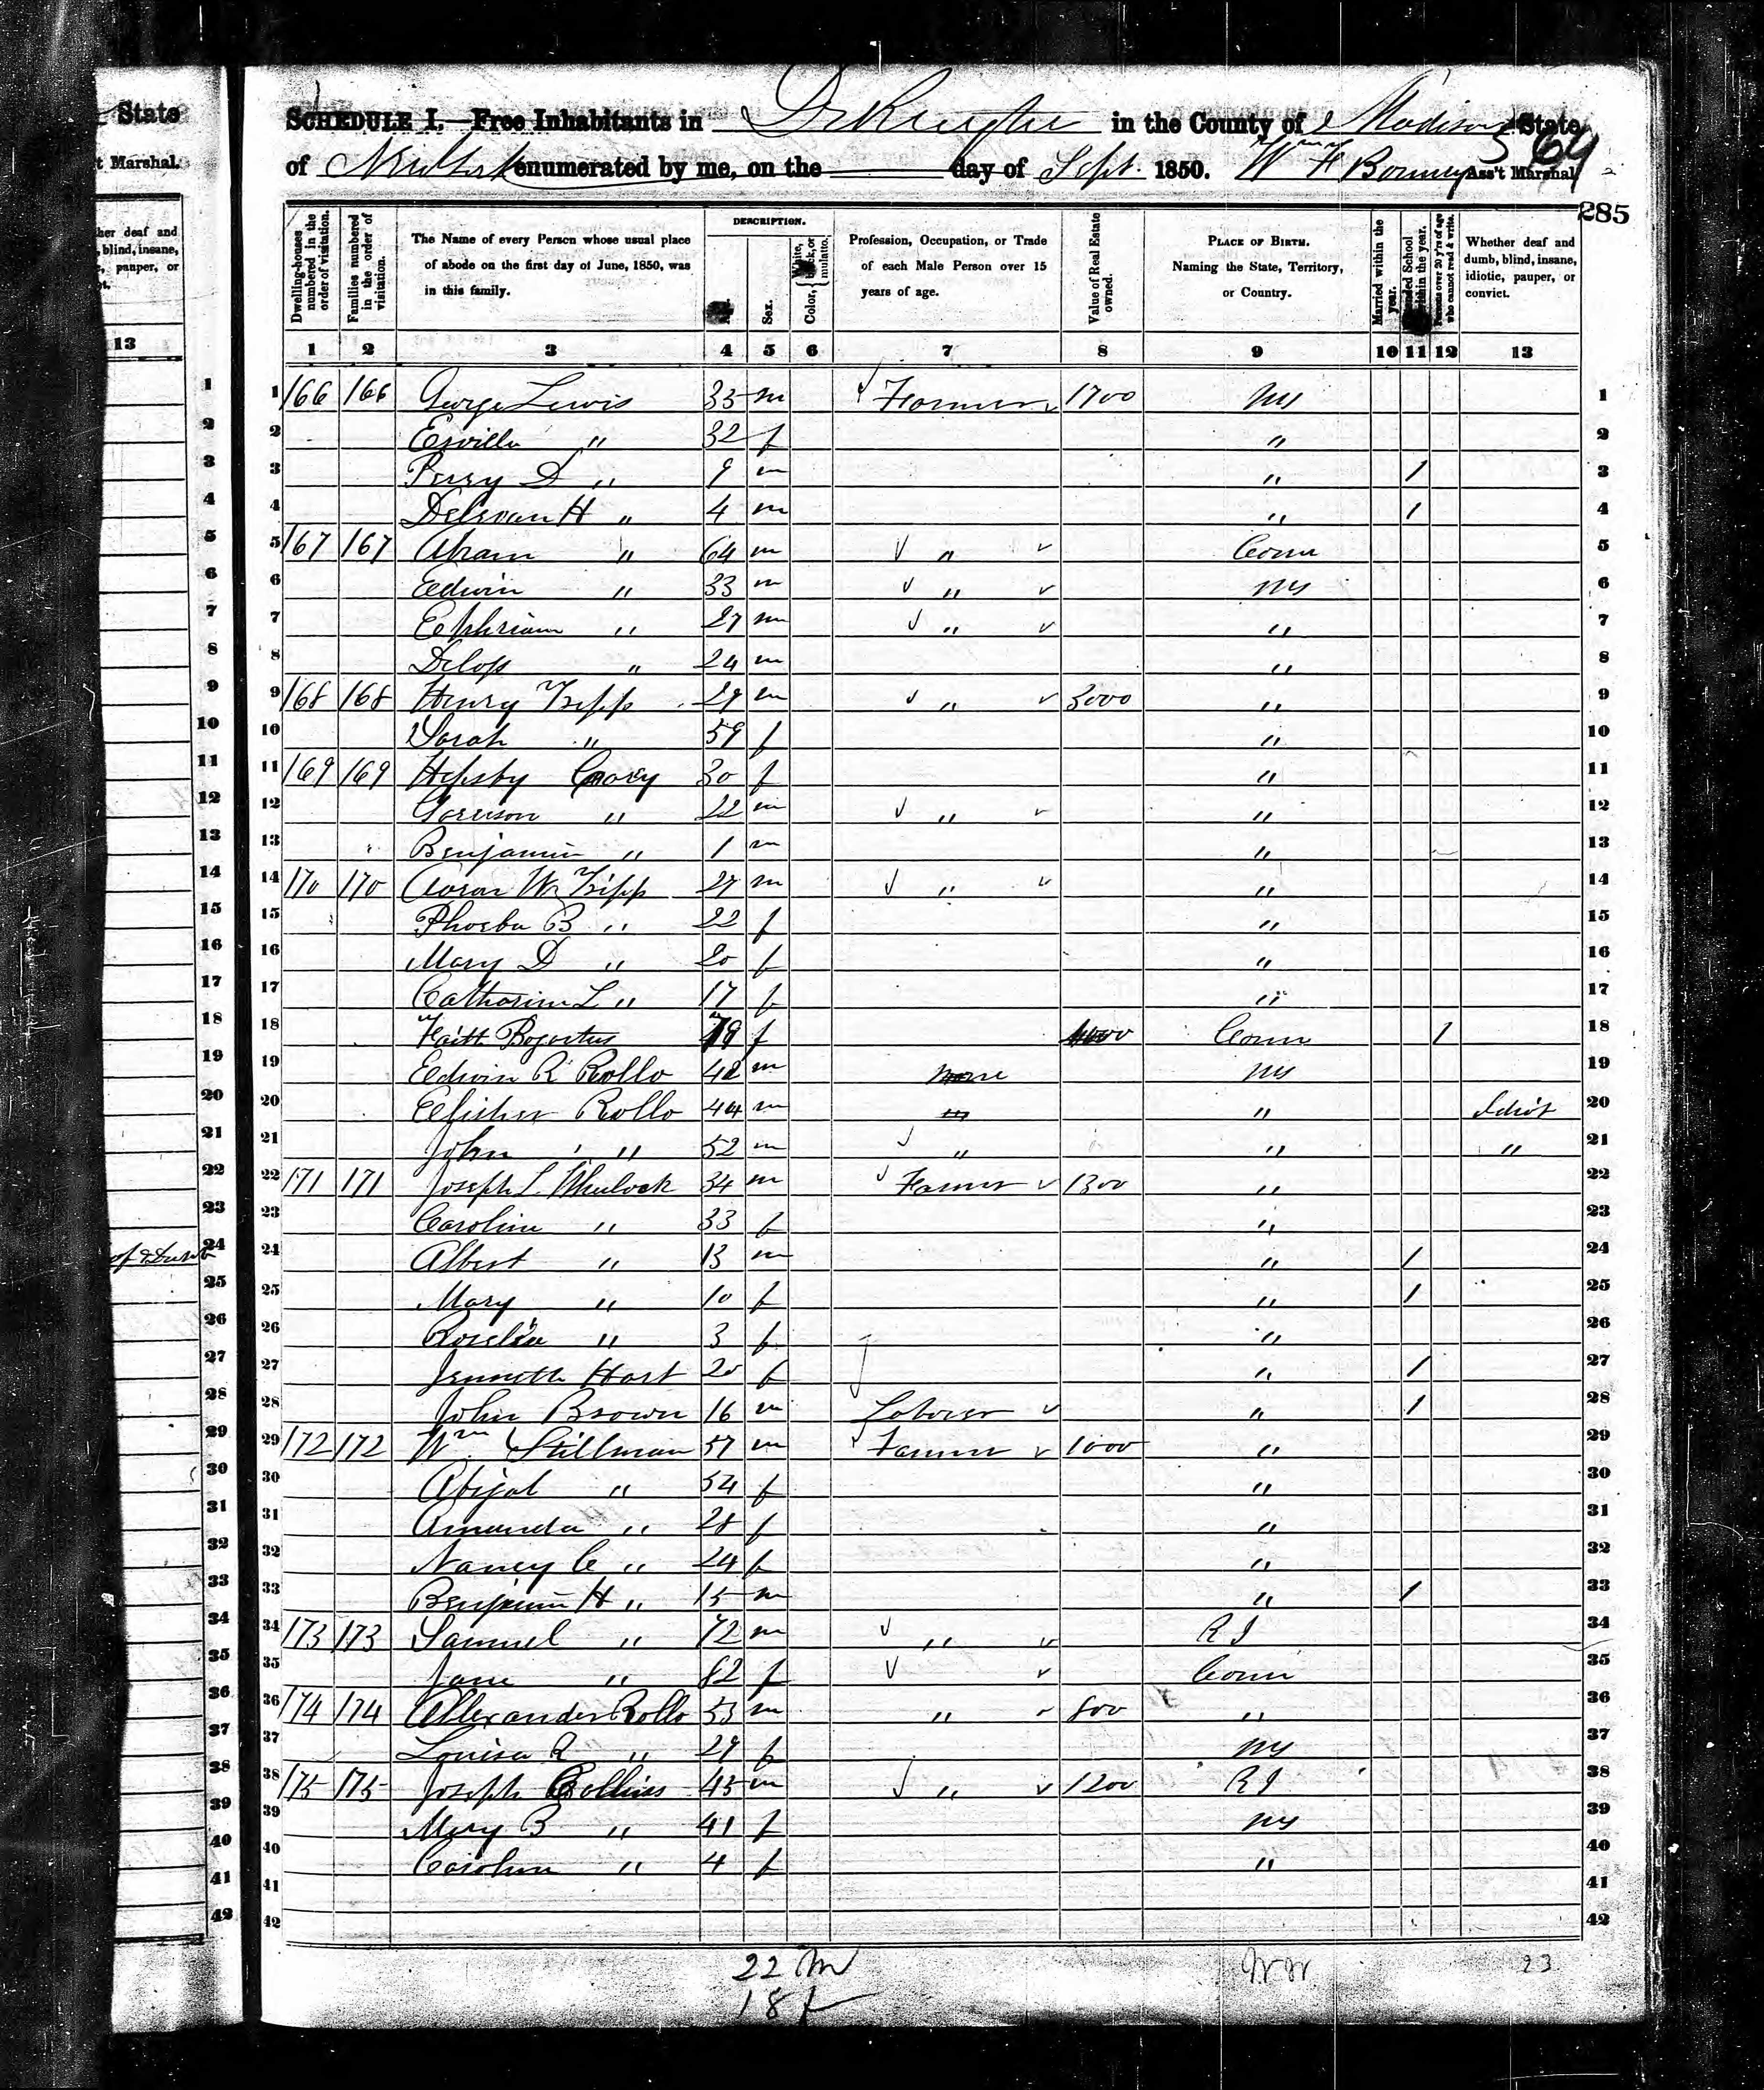 State
t Marshal.
her deaf and
, blind, insane,
c, pauper, or
ot.
13
SCHEDULE I.—Free Inhabitants in DeRuyter in the County of Madison State
of New York enumerated by me, on the day of Sept. 1850. Wm F Bonney Ass't Marshal
64
285
Dwelling-houses numbered in the order of visitation.
Families numbered in the order of visitation.
The Name of every Person whose usual place of abode on the first day of June, 1850, was in this family.
DESCRIPTION.
Sex.
Color, White, black, or mulatto.
Profession, Occupation, or Trade of each Male Person over 15 years of age.
Value of Real Estate owned.
PLACE OF BIRTH. Naming the State, Territory, or Country.
Married within the year.
School within the year.
Persons over 20 y'rs of age who cannot read & write.
Whether deaf and dumb, blind, insane, idiotic, pauper, or convict.
1 2 3 4 5 6 7 8 9 10 11 12 13
1 166 166 George Lewis 35 m Farmer 1700 NY 1
2 " 32 f " 2
3 Perry D " 9 m " 1 3
4 Delevan H " 4 m " 1 4
5 167 167 Abram " 64 m " Conn 5
6 Edwin " 33 m " NY 6
7 Ephriam " 27 m " " 7
8 Delos " 24 m " 8
9 168 168 Henry Tripp 29 m " 3000 " 9
10 Sarah " 59 f " 10
11 169 169 Hepsby 30 f " 11
12 Garrison " 22 m " " 12
13 Benjamin " 1 m " 13
14 170 170 W Tripp 27 m " " 14
15 Phoebe B " 22 f " 15
16 Mary D " 20 f " 16
17 Catharine L " 17 f " 17
18 Faith Bogartus 79 f Conn 1 18
19 Edwin R Rollo 42 m None NY 19
20 Elisher Rollo 44 m " " Idiot 20
21 John " 52 m " " " 21
22 171 171 Joseph L. Whulock 34 m Farmer 1300 " 22
23 Caroline " 33 f " 23
24 Albert " 13 m " 1 24
25 Mary " 10 f " 1 25
26 Roselia " 3 f " 26
27 Jennette Hart 20 f " 1 27
28 John Brown 16 m Laborer " 1 28
29 172 172 Wm Stillman 57 m Farmer 1000 " 29
30 Abigal " 54 f " 30
31 Amanda " 28 f " 31
32 Nancy C " 24 f " 32
33 Benjamin H " 15 m " 1 33
34 173 173 Samuel " 72 m " R I 34
35 Jane " 82 f Conn 35
36 174 174 Allexander Rollo 53 m " 800 " 36
37 Louisa R " 29 f NY 37
38 175 175 Joseph Collins 45 m " 1200 R I 38
39 Mary B " 41 f NY 39
40 Caroline " 4 f " 40
41 41
42 42
22 M
18 f
23